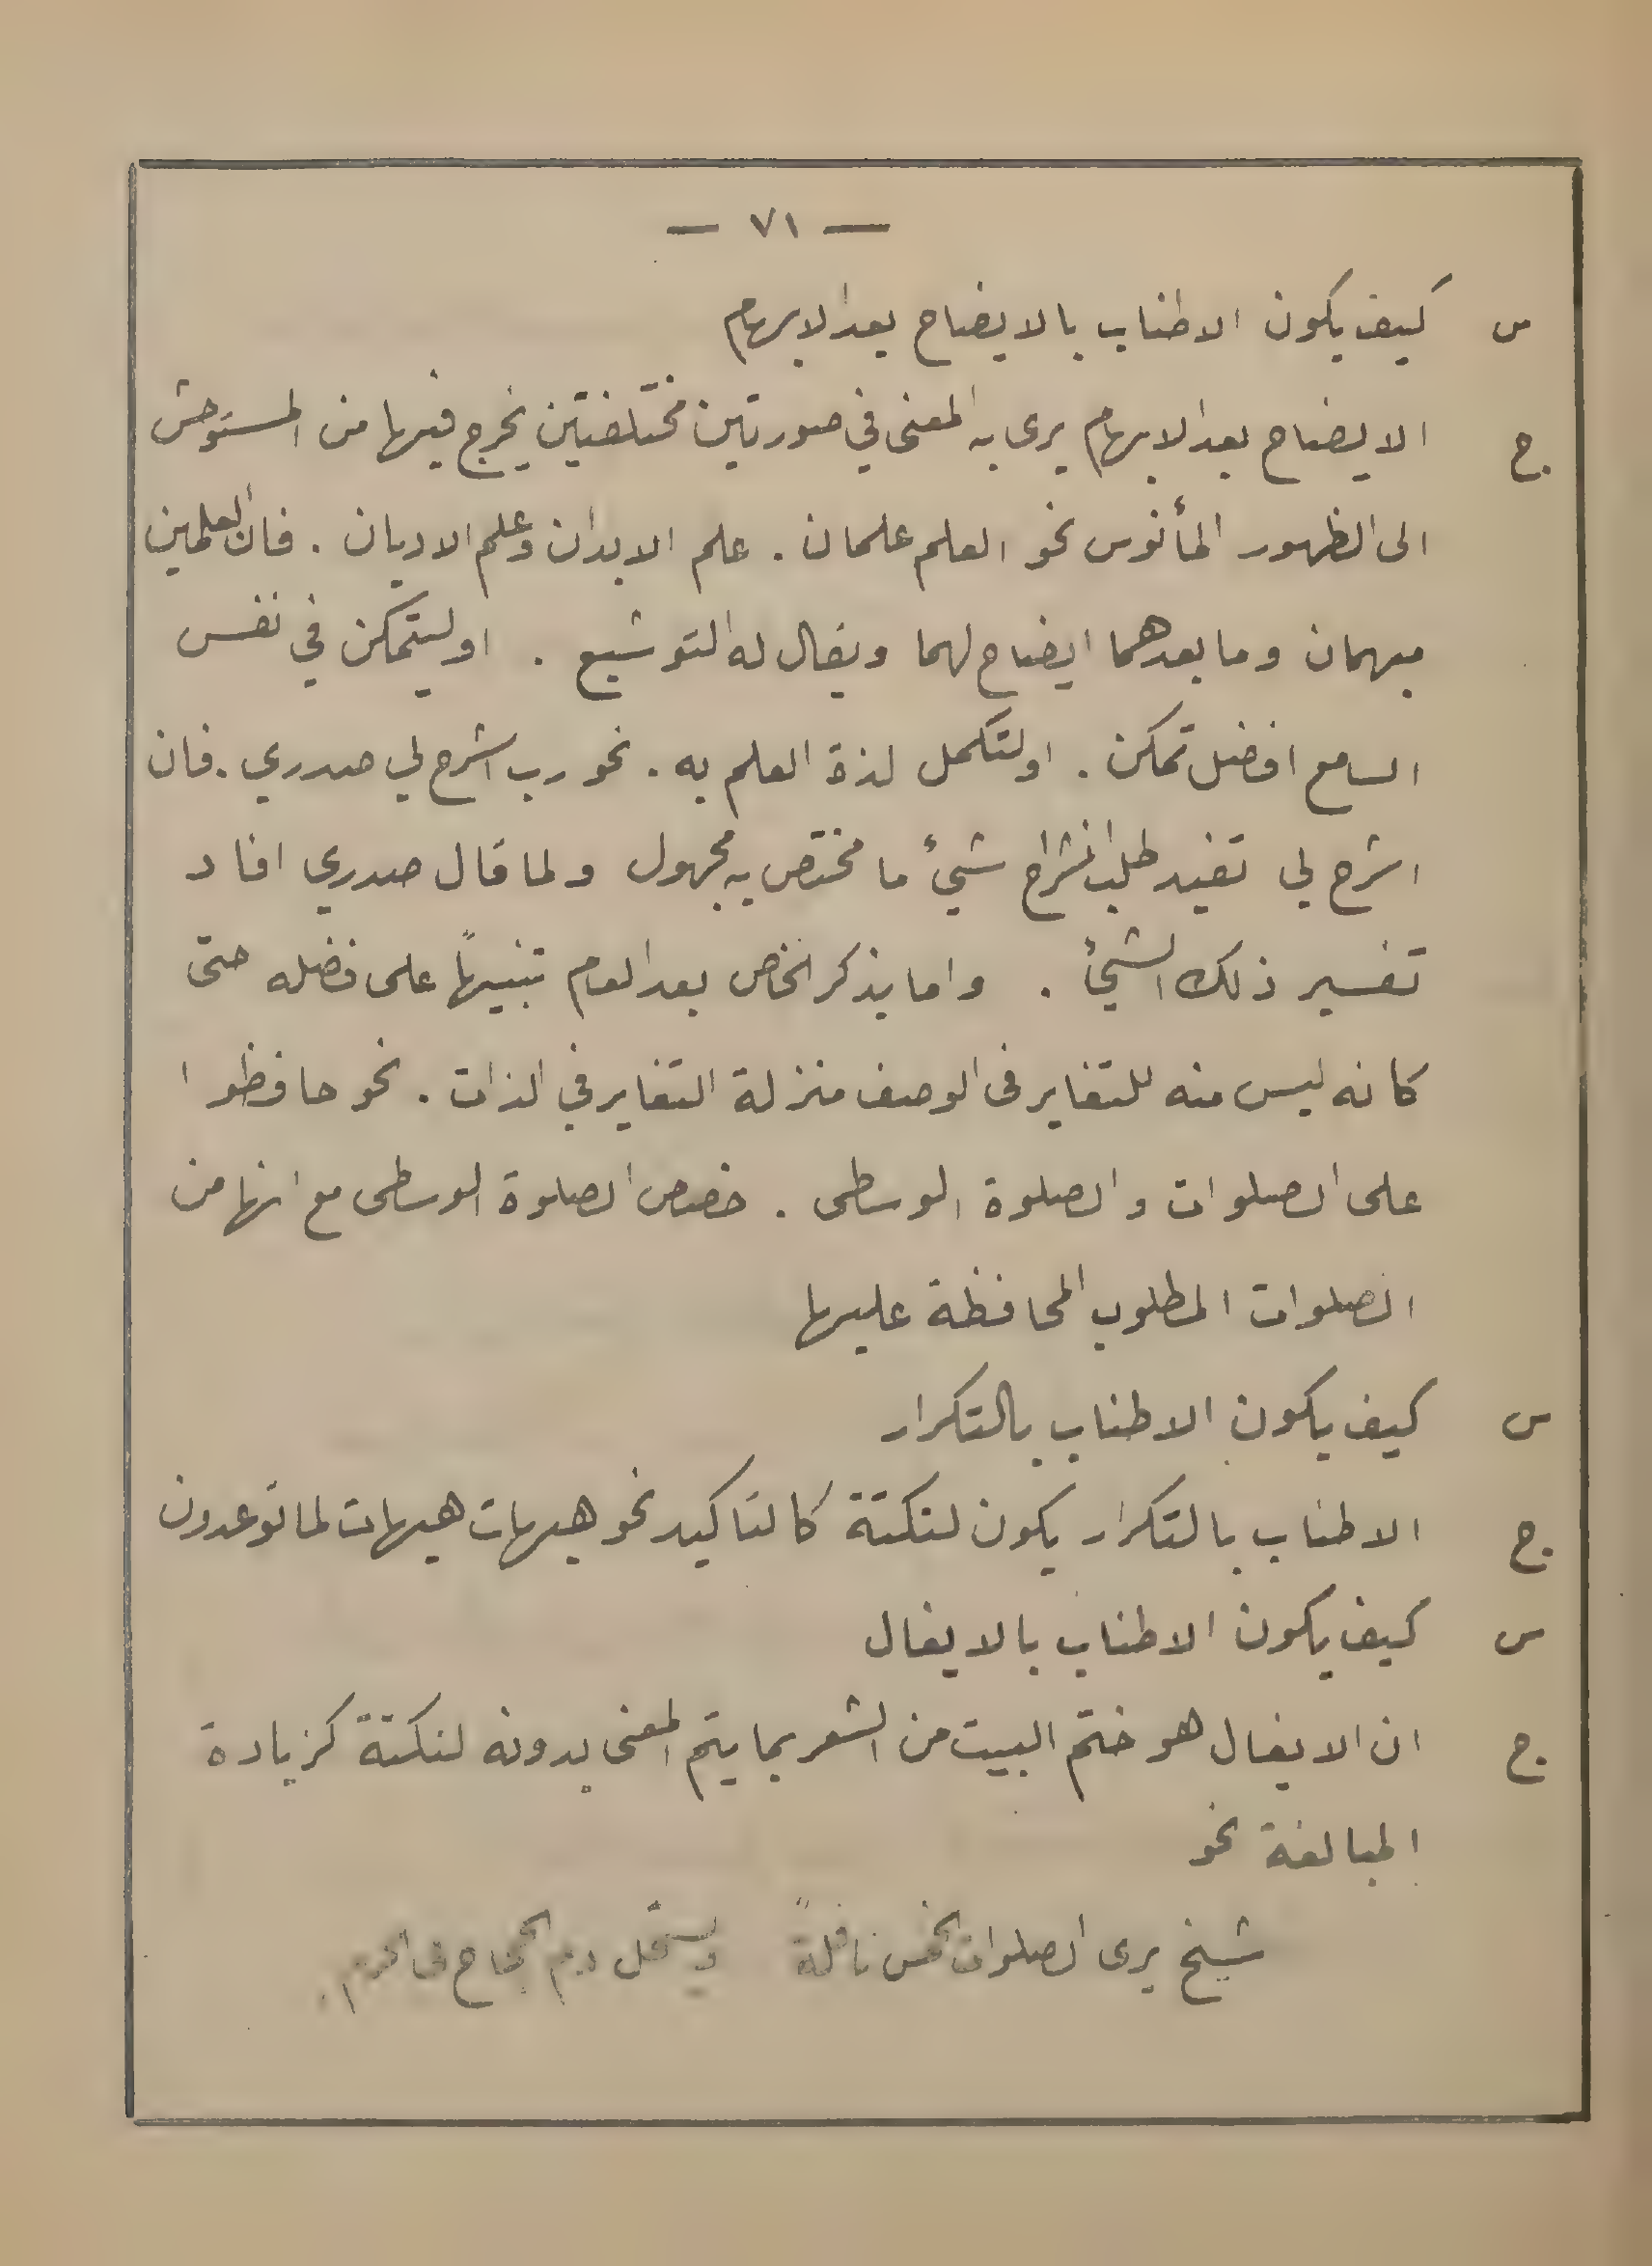 — ٧١ —
س كيف يكون الاطناب بالايضاح بعد الابهام
ج. الايضاح بعد الابهام يرى به المعنى في صورتين مختلفتين يخرج فيها من المستوحش
الى الظهور المأنوس نحو العلم علمان . علم الابدان وعلم الاديان . فان العلمين
مبهمان وما بعدهما ايضاح لهما ويقال له التوشيع . او ليتمكن في نفس
السامع افضل تمكن . او لتكمل لذة العلم به . نحو رب اشرح لي صدري . فان
اشرح لي تفيد طلب انشراح شيئ ما مختص به مجهول ولما قال صدري افاد
تفسير ذلك الشيئ . واما يذكر الخاص بعد العام تنبيهاً على فضله حتى
كانه ليس منه للتغاير فى الوصف منزلة التغاير في الذات . نحو حافظوا
على الصلوات والصلوة الوسطى . خصص الصلوة الوسطى مع انها من
الصلوات المطلوب المحافظة عليها
س كيف يكون الاطناب بالتكرار
ج. الاطناب بالتكرار يكون لنكتة كالتاكيد نحو هيهات هيهات لما توعدون
س كيف يكون الاطناب بالايغال
ج. ان الايغال هو ختم البيت من الشعر بما يتم المعنى بدونه لنكتة كزيادة
المبالغة نحو
شيخ يرى الصلوات الخمس نافلةً ويستحل دم الحجاج فى الحرم .